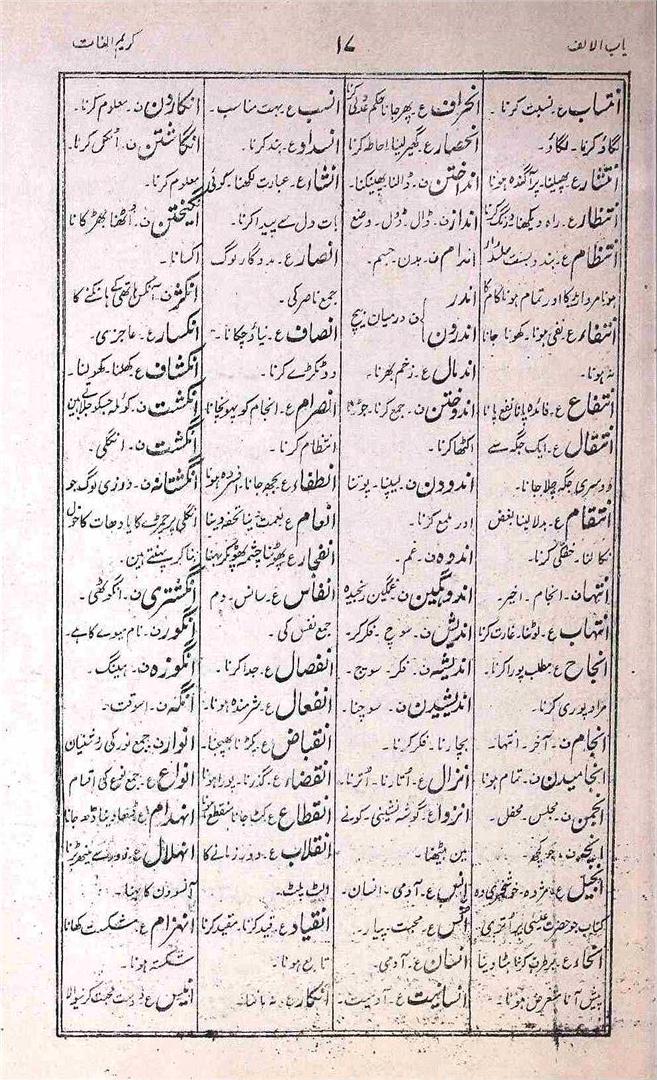 باب الالف
۱۷
کریم اللغات
انتساب ع۔ نسبت کرنا۔
لگاؤ کرنا۔ لگاؤ۔
انتشار ع پھیلنا۔ پراگندہ ہونا
انتظار ع۔ راہ دیکھنا
انتظام ع۔ بندوبست
ہونا مرواڑیکا اور تمام ہونا کام کا
انتفاء ع۔ نفی ہونا۔ کھونا جانا
نہ ہونا۔
انتفاع ع۔ فائدہ پانا نفع پانا
انتقال ع۔ ایک جگہ سے
دوسری جگہ چلا جانا۔
انتقام ع۔ بدلا لینا بغض
نکالنا۔ خفگی کرنا۔
انتہا ن۔ انجام۔ اخیر۔
انتہاب ع۔ لوٹنا۔ غارت کرنا
انجاح ع۔ مطلب پورا کرنا۔
مراد پوری کرنا۔
انجام ن۔ آخر۔ انتہا۔
انجامیدن ن۔ تمام ہونا
انجمن ن۔ مجلس۔ محفل۔
انچہ ن۔ جو کچھ۔
انجیل ع۔ مژدہ۔ خوشخبری دہ
کتاب جو حضرت عیسیٰ پر اتری
انحاد ع۔
پیش آنا متعرض ہونا۔
انحراف ع پھر جانا حکم عدولی کرنا
انحصار ع گھیر لینا۔ احاطہ کرنا
انداختن ن۔ ڈالنا پھینکنا۔
انداز ن۔ ڈال۔ ڈول۔ وضع
اندام ن۔ بدن۔ جسم۔
اندر
اندرون } ن درمیان۔ بیچ
اندمال ع۔ زخم بھرنا۔
اندوختن ن۔ جمع کرنا۔ جوڑنا
اکٹھا کرنا۔
اندودن ن۔ لیپنا۔ پوتنا
اور ملمع کرنا۔
اندوہ ن۔ غم۔
اندوہگین ن۔ غمگین رنجیدہ
اندیش ن۔ سوچ۔ فکر کر۔
اندیشہ ن۔ فکر۔ سوچ۔
اندیشیدن ن۔ سوچنا۔
بچارنا۔ فکر کرنا۔
انزال ع۔ اُتارنا۔ اُترنا۔
انزواع۔ گوشہ نشینی۔ کونے
مین بیٹھنا۔
انس ع۔ آدمی۔ انسان۔
اُنس ع۔ محبت۔ پیار۔
انسان ع۔ آدمی۔
انسانیت ع۔ آدمیت۔
انسب ع۔ بہت مناسب۔
انسداد ع۔ بند کرنا۔
انشاء ع۔ عبارت لکھنا۔ کوئی
بات دل سے پیدا کرنا۔
انصار ع۔ مددگار لوگ
جمع ناصر کی۔
انصاف ع۔ نیاؤ چکانا۔
دو ٹکڑے کرنا۔
انصرام ع۔ انجام کو پہونچانا
انتظام کرنا۔
انطفاء ع بجھ جانا۔ افسردہ ہونا
انعام ع۔ نعمت دینا تحفہ دینا
انفجار ع۔ پھوٹنا چشمہ پھوٹ کر بہنا
انفاس ع۔ سانس۔ دم
جمع نفس کی۔
انفصال ع۔ جدا کرنا۔
انفعال ع۔ شرمندہ ہونا۔
انقباض ع۔ پکڑنا بھیچنا۔
انقضاء ع۔ گذرنا۔ پورا ہونا
انقطاع ع۔ کٹ جانا منقطع ہونا
انقلاب ع۔ دور زمانے کا
الٹ پلٹ۔
انقیاد ع۔ قید کرنا۔ مقید کرنا
تابع ہونا۔
انکار ع۔ نہ ماننا۔
انگاردن ن۔ معلوم کرنا۔
انگاشتن ن۔ اٹکل کرنا۔
معلوم کرنا۔
انگیختن ن۔ اُٹھنا بھڑکانا
اکسانا۔
انکژ ن۔ آنکس ہاتھی کے ہانکنے کا
انکسار ع۔ عاجزی۔
انکشاف ع۔ کھلنا۔ کھولنا۔
انگشت ن۔ کوئلہ جسکو جلاتے ہین
انگشت ن۔ انگلی۔
انگشتانہ ن۔ درزی لوگ جو
انگلی پر چمڑے کا یا دھات کا خول
بنا کر پہنتے ہین۔
انگشتری ن۔ انگوٹھی۔
انگور ن۔ نام میوے کا ہے۔
انگوزہ ن۔ ہینگ۔
آنگہ ن۔ اسوقت۔
انوار ن۔ جمع نور کی روشنیان
انواع ع۔ جمع نوع کی اقسام
انہدام ع۔ ڈھا دینا ڈھ جانا
انہلال ع۔
آنسوؤن کا بہنا۔
انہزام ع۔ شکست کھانا
شکستہ ہونا۔
انیس ع۔ دوست محبت کرنیوالا